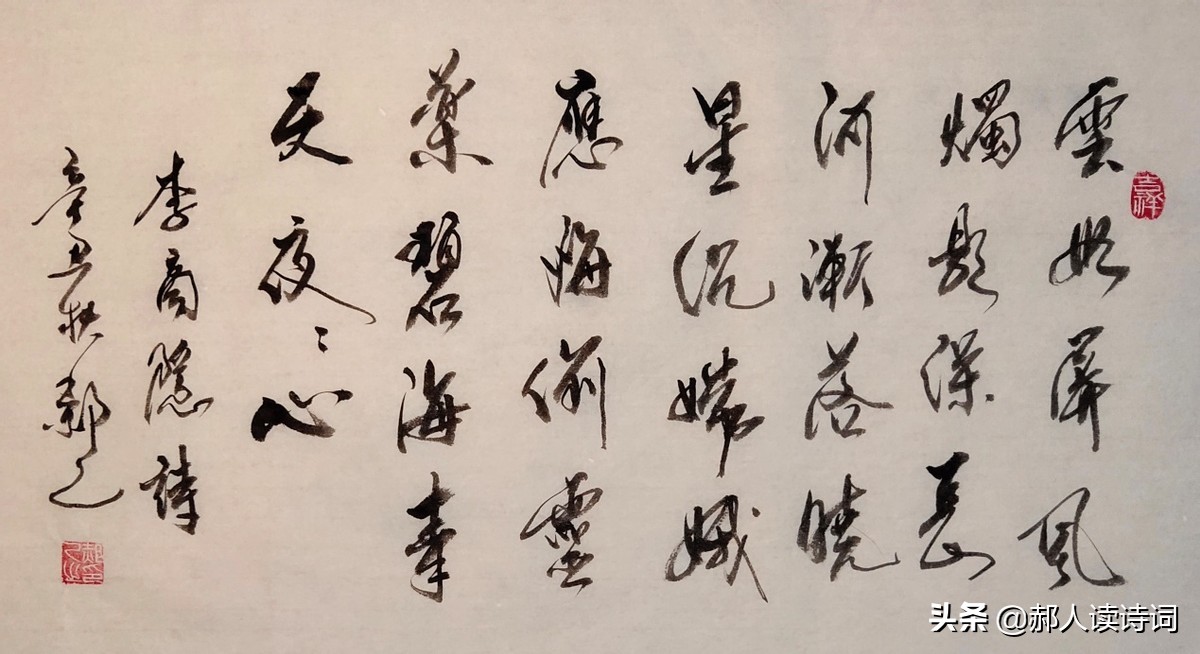 吉祥
雲母屏風
燭影深長
河漸落曉
星沉嫦娥
應悔偷靈
藥碧海青
天夜〻心
李商隱詩
辛丑秋郝
头条 @郝人读诗词